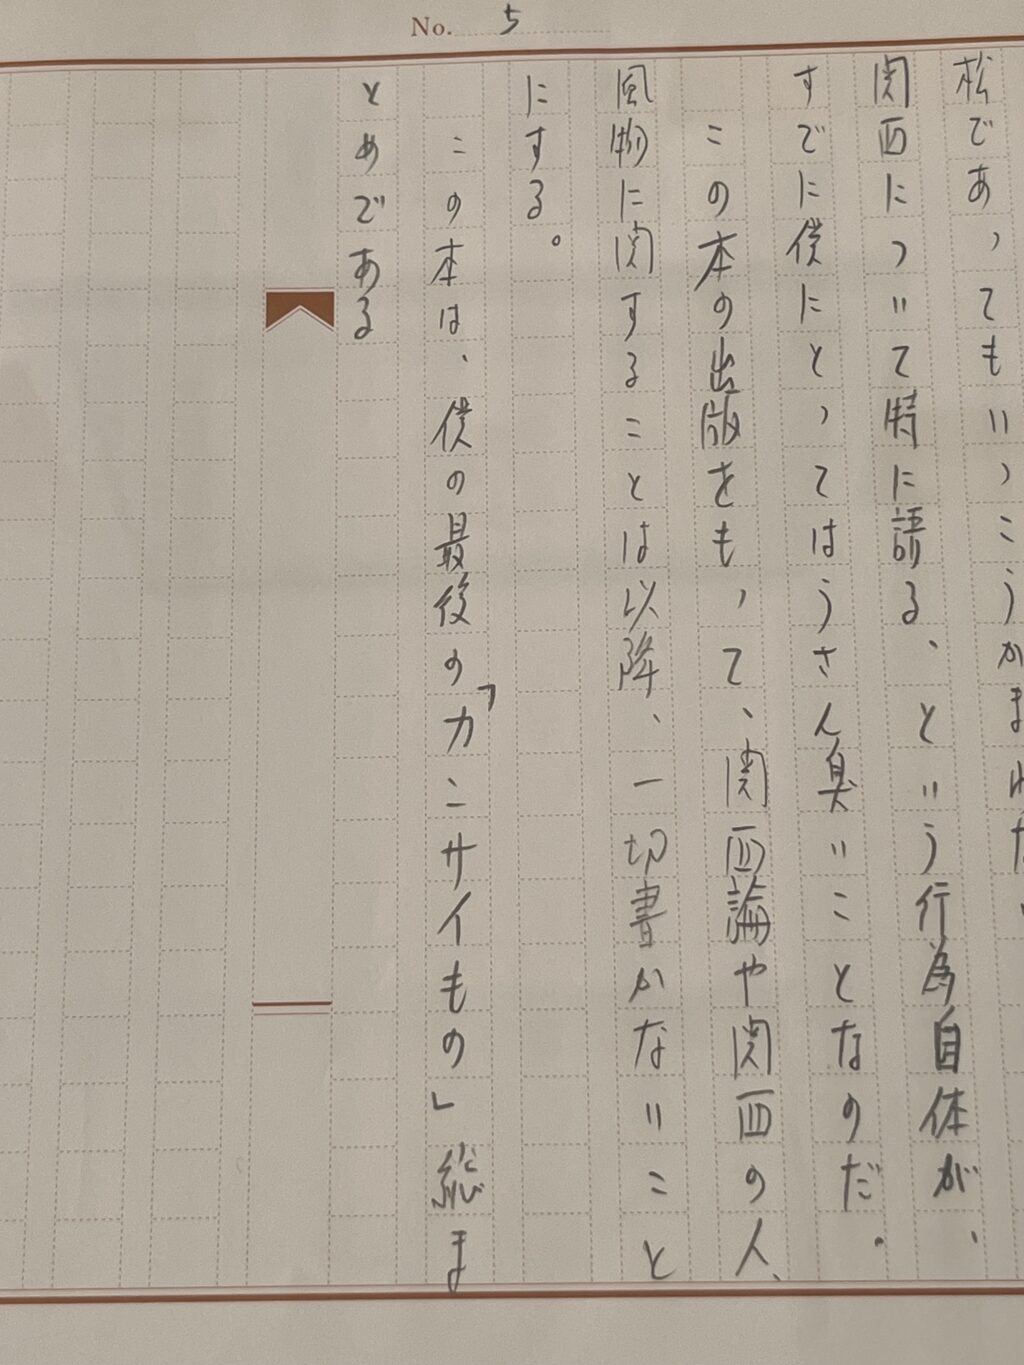 No. 5
松であってもいっこうかまわない
関西について特に語る、という行為自体が、
すでに僕にとってはうさん臭いことなのだ。
この本の出版をもって、関西論や関西の人、
風物に関することは以降、一切書かないこと
にする。
この本は、僕の最後の「カンサイもの」総ま
とめである